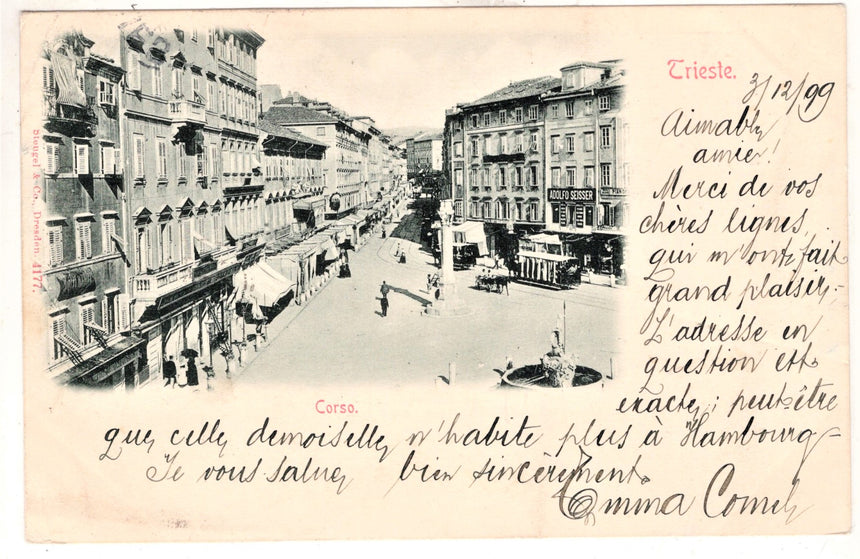 Trieste.
3/12/99
Aimable
amie!
Merci de vos
chères lignes,
qui m'ont fait
grand plaisir.
L'adresse en
question est
exacte; peut-être
que celle demoiselle n'habite plus à Hambourg
Je vous salue bien sincèrement
Emma
ADOLFO SEISSER
Corso.
Stengel & Co., Dresden. 4177.